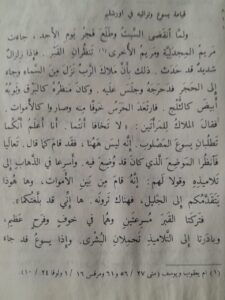 قيامة يسوع وترائيه في اورشليم
ولمَّا آنقضى السبتُ وطلعَ فجرُ يوم الأحدِ، جاءت
مريمُ المجدليَّةُ ومريمُ الأخرى (١) تنظُرانِ القبرَ. فإذا زلزالٌ
شديدٌ قد حدَثَ. ذلك بأنَّ ملاكَ الربِّ نزلَ من السَّماءِ وجاءَ
إلى الحجرِ فدحرجهُ وجلسَ عليه. وكانَ منظرُهُ كالبرقِ وثوبُه
أبيضَ كالثَّلجِ. فارتعدَ الحرسُ خوفًا منه وصاروا كالأموات.
فقالَ الملاكُ للمرأتين: لا تخافا أنتما. أنا أعلمُ أنَّكما
تطلُبانِ يسوعَ المصلوب. إنَّه ليسَ هٰهُنا، فقد قامَ كما قال. تعاليَا
فآنظُرا الموضعَ الَّذي كانَ قد وُضعَ فيه. وأسرِعا في الذَّهابِ إلى
تلاميذِهِ وقولا لهم: إنَّهُ قامَ من بينِ الأموات، وها هُوَذا
يتقدَّمُكم إلى الجليل، فهناكَ ترَونَه. ها إنِّي قد قلتُ لكما.
فتركتا القبرَ مُسرِعتَينِ وهما في خوفٍ وفرحٍ عظيم،
وبادرَتا إلى التَّلاميذِ تحملانِ البُشرى. وإذا يسوعُ قد جاءَ
(١) ام يعقوب ويوسف (متى ٢٧ / ٥٦ و٦١ ومرقس ١٦ / ١ ولوقا ٢٤ / ١٠).